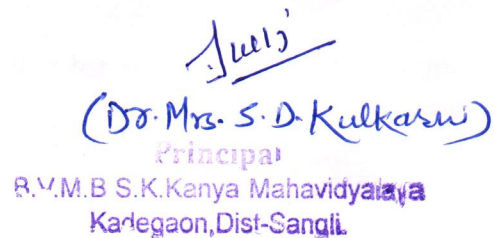 (Dr. Mrs. S. D. Kulkarni)
Principal
B.V.M.B S.K.Kanya Mahavidyalaya
Kadegaon,Dist-Sangli.